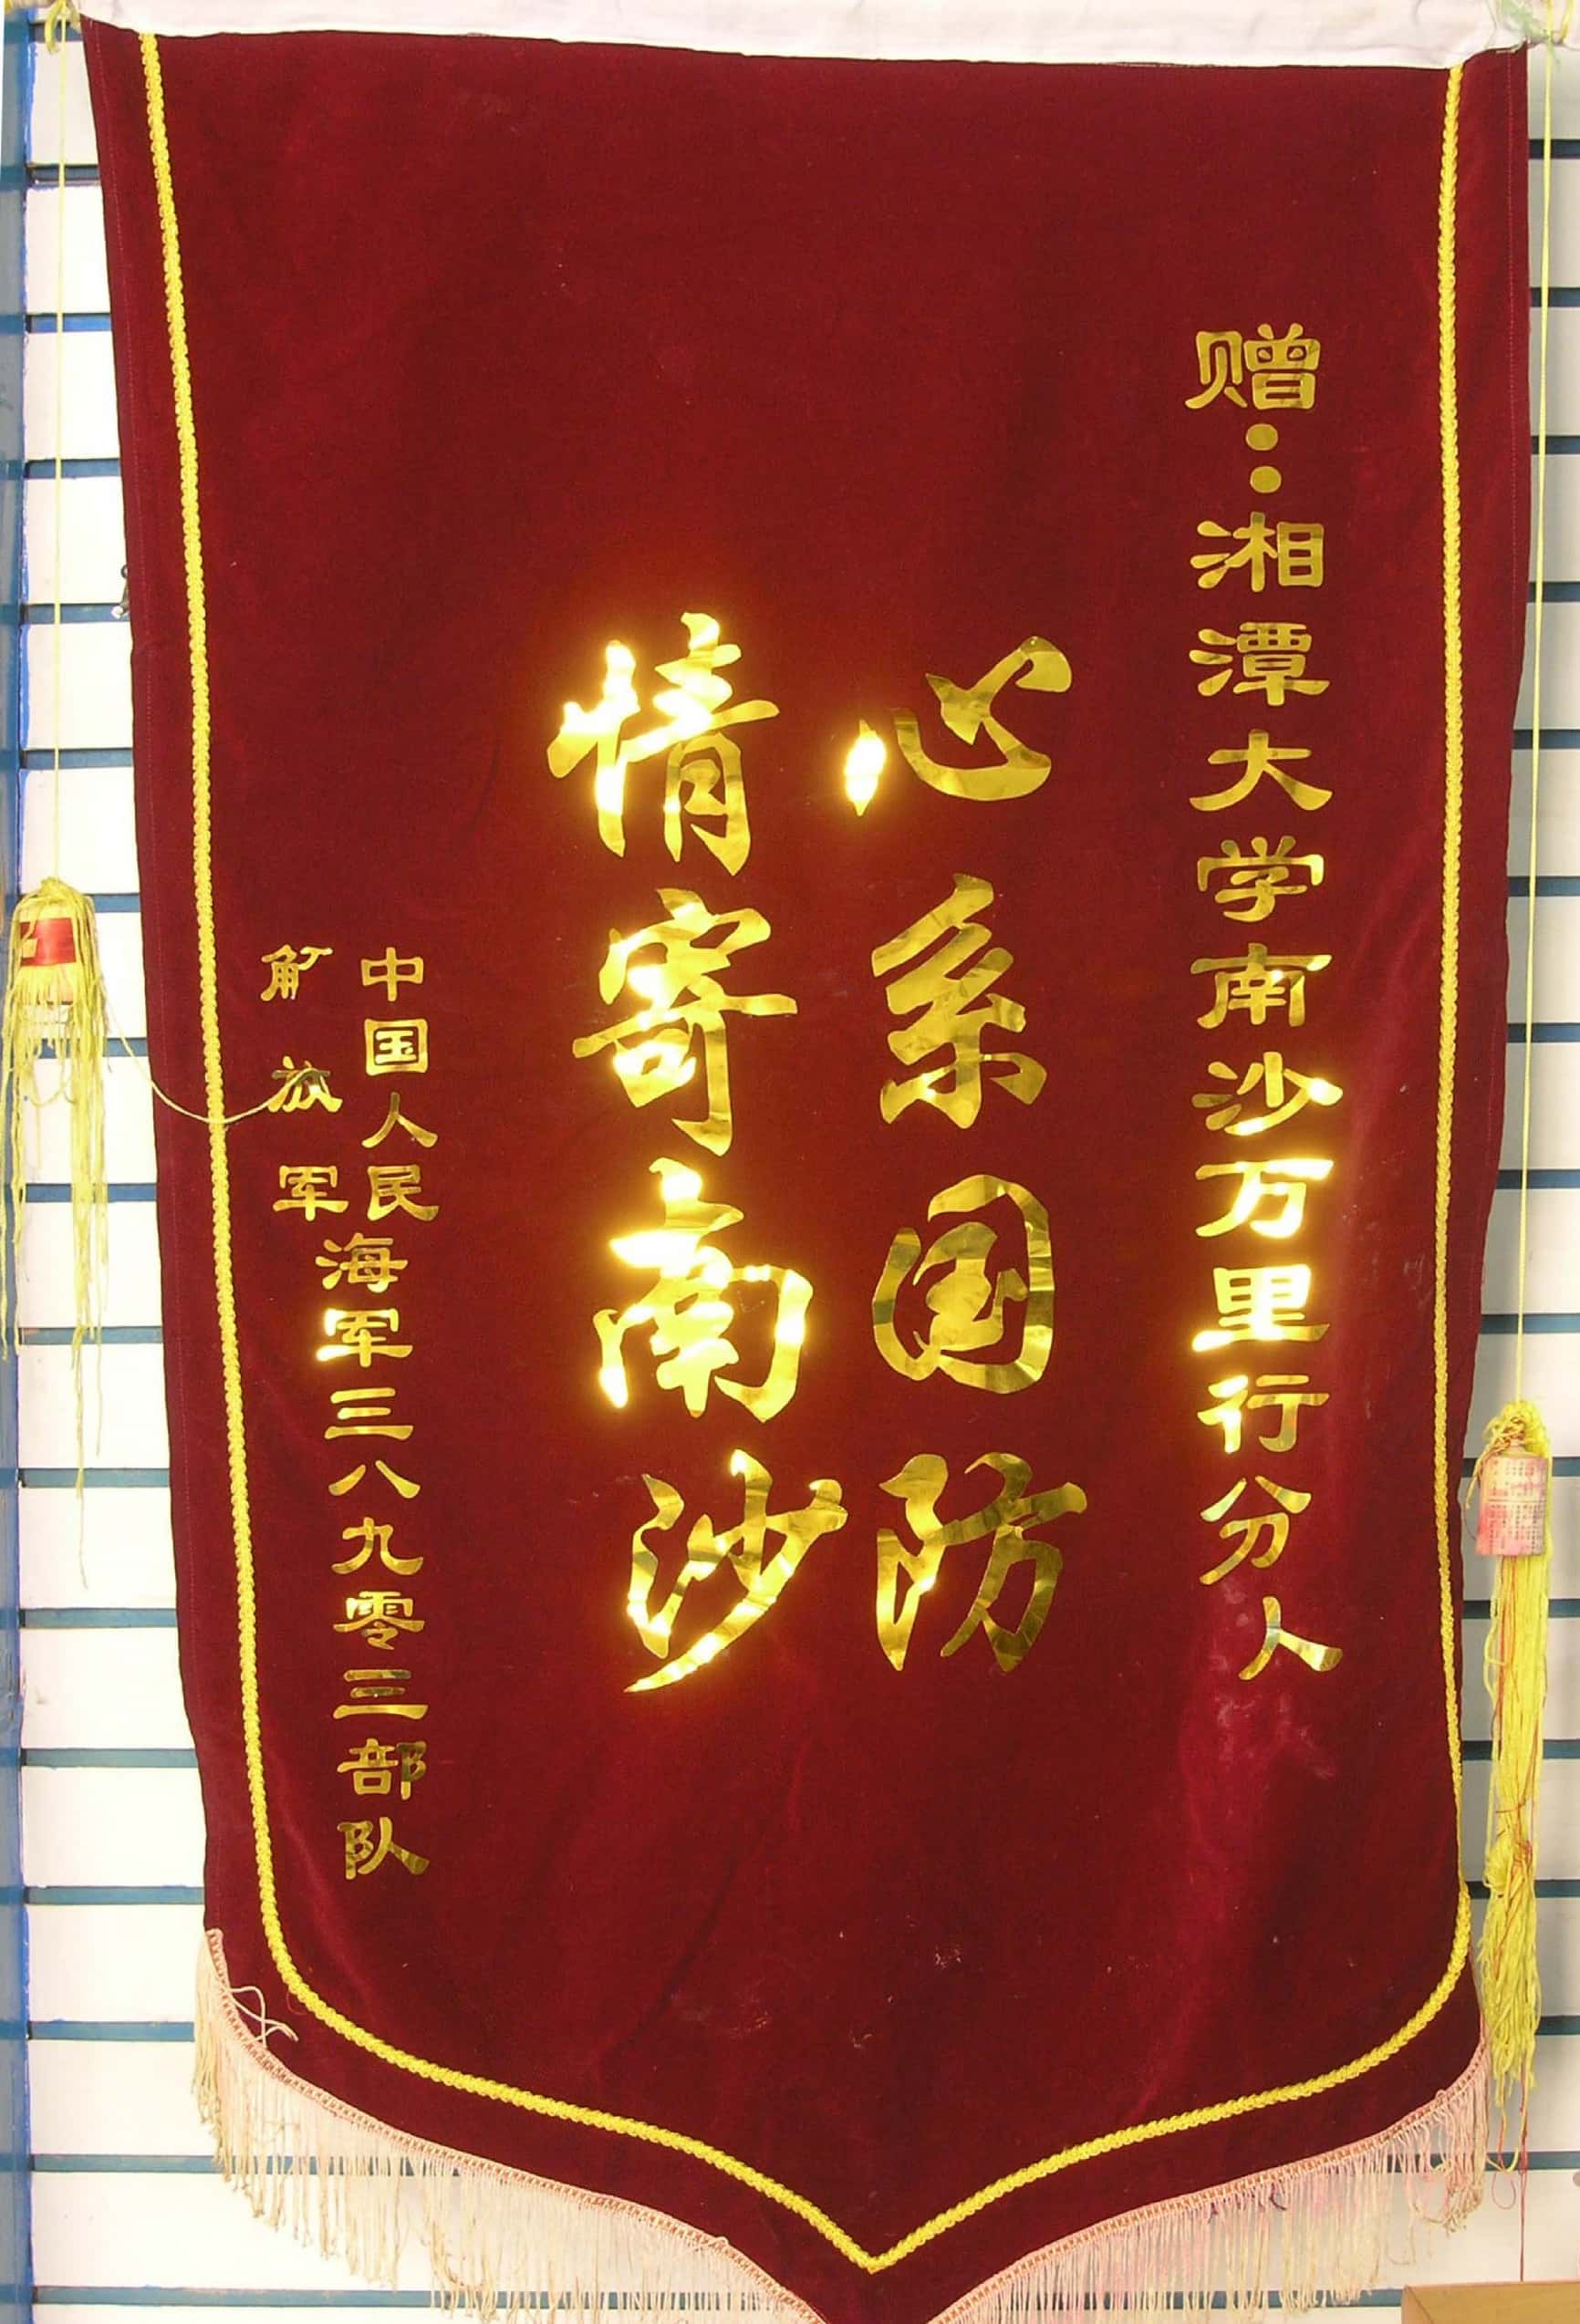 赠：湘潭大学南沙万里行分人
心系国防
情寄南沙
中国人民
解放军
海军三八九零三部队